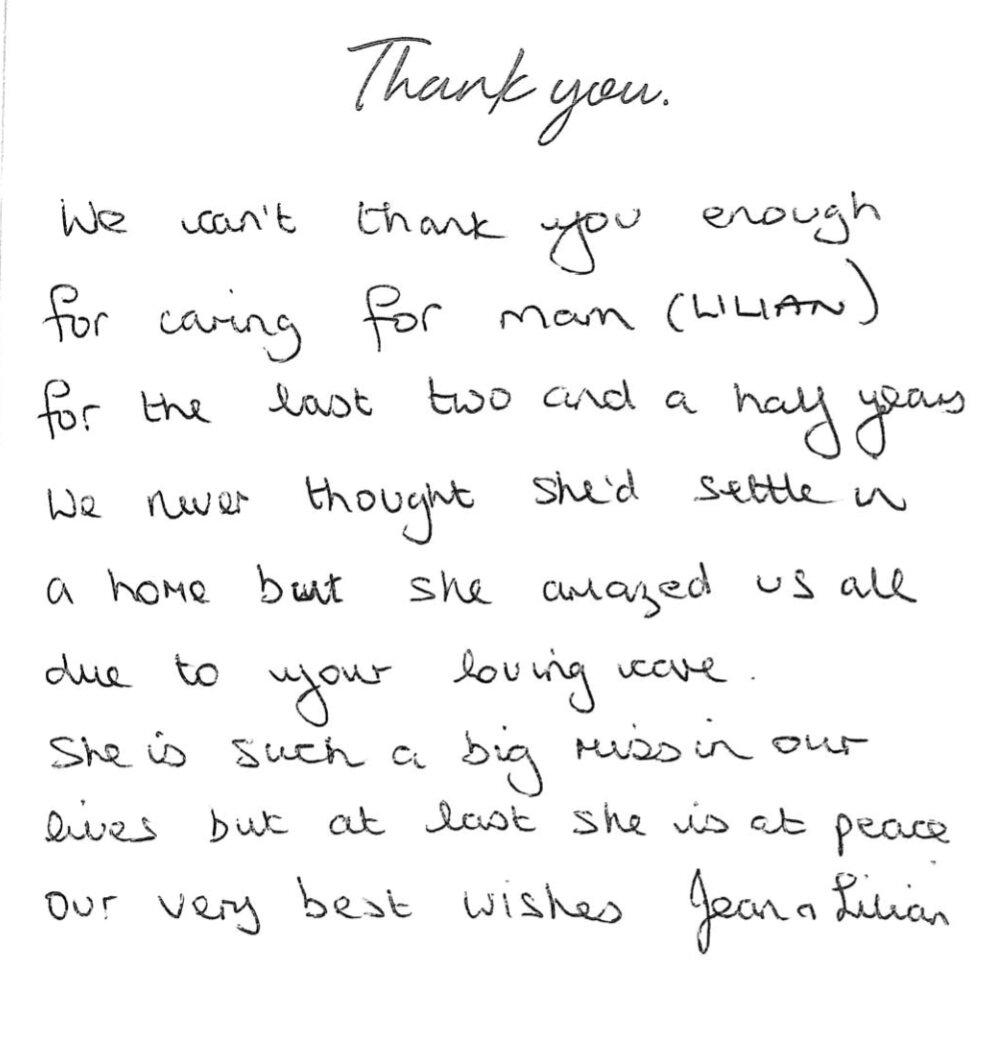 Thank you.
We can't thank you enough
for caring for mam (LILIAN)
for the last two and a half years
We never thought she'd settle in
a home but she amazed us all
due to your loving care.
She is such a big miss in our
lives but at last she is at peace
our very best wishes Jean & Lilian